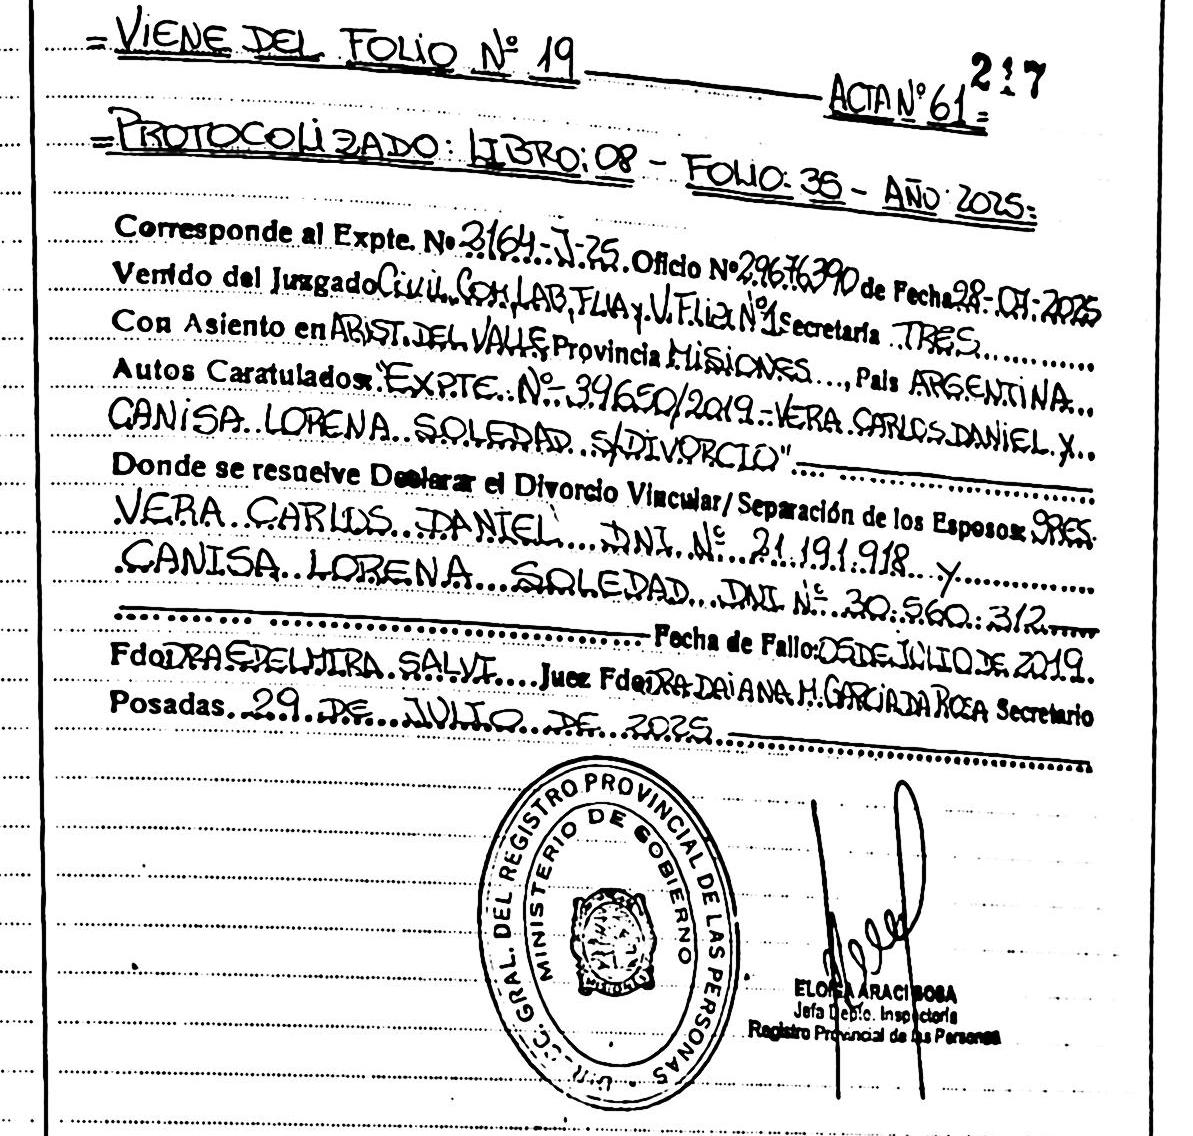 =VIENE DEL FOLIO Nº 19 ACTA Nº 61= 217
=PROTOCOLIZADO: LIBRO: 08 - FOLIO: 35 - AÑO: 2025=
Corresponde al Expte. Nº 3164-J-25. Oficio Nº 29676390 de Fecha 28-07-2025
Venido del Juzgado Civil, Com, LAB, FLIA y V. Flia Nº1 Secretaría TRES
Con Asiento en ARIST. DEL VALLE Provincia MISIONES, País ARGENTINA
Autos Caratulados: "EXPTE. Nº 39650/2019 - VERA CARLOS DANIEL Y
CANISA LORENA SOLEDAD S/DIVORCIO"
Donde se resuelve Declarar el Divorcio Vincular/ Separación de los Esposos: SRES.
VERA CARLOS DANIEL DNI Nº 21.191.918 Y
CANISA LORENA SOLEDAD DNI Nº 30.560.312
Fecha de Fallo: 05 DE JULIO DE 2019.
Fdo DRA EDELMIRA SALVI Juez Fdo: DRA DAIANA M. GARCIA DA ROSA Secretario
Posadas, 29 DE JULIO DE 2025
GRAL. DEL REGISTRO PROVINCIAL DE LAS PERSONAS
MINISTERIO DE GOBIERNO
MISIONES
ELOISA ARACI SOSA
Jefa Depto. Inspectoría
Registro Provincial de las Personas